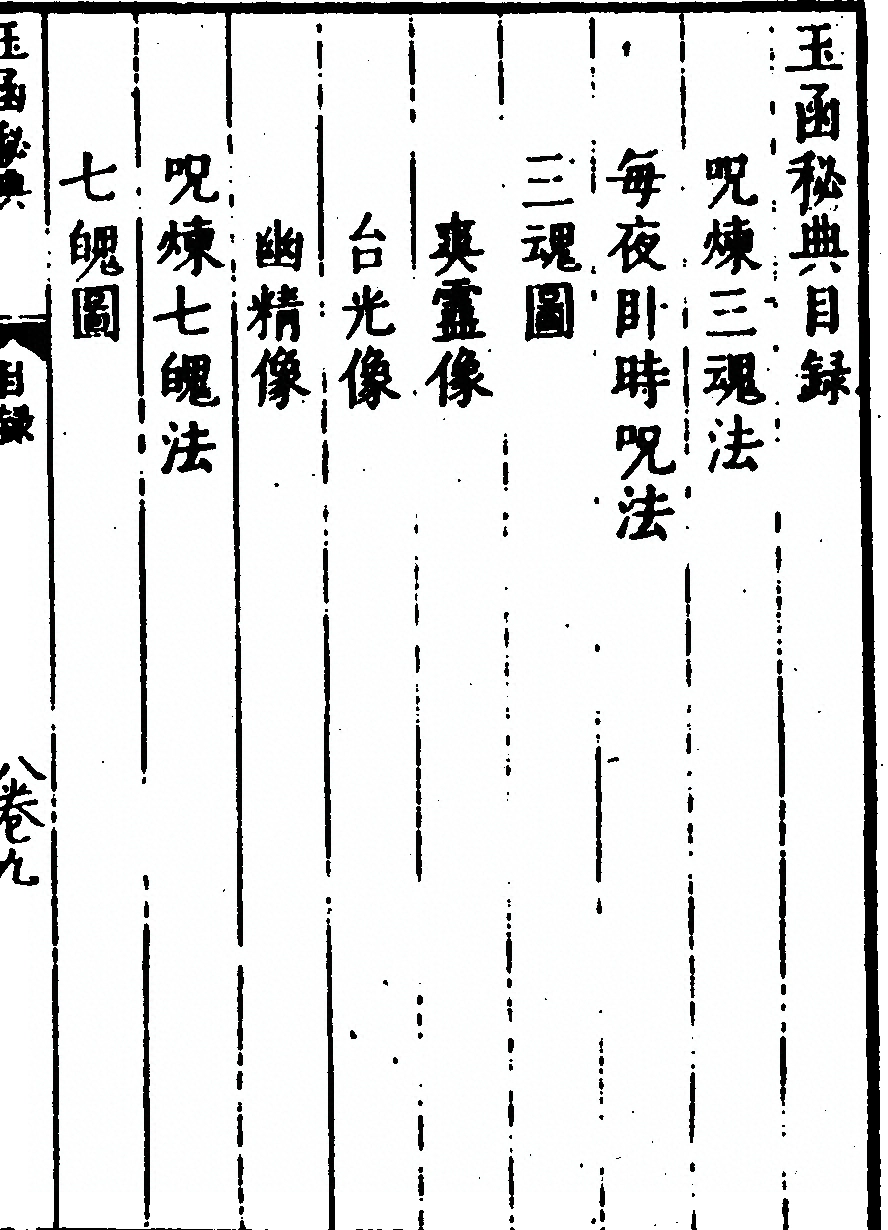 玉函秘典目録
呪煉三魂法
每夜卧時呪法
三魂圖
爽靈像
台光像
幽精像
呪煉七魄法
七魄圖
玉函秘典
目録
八卷九